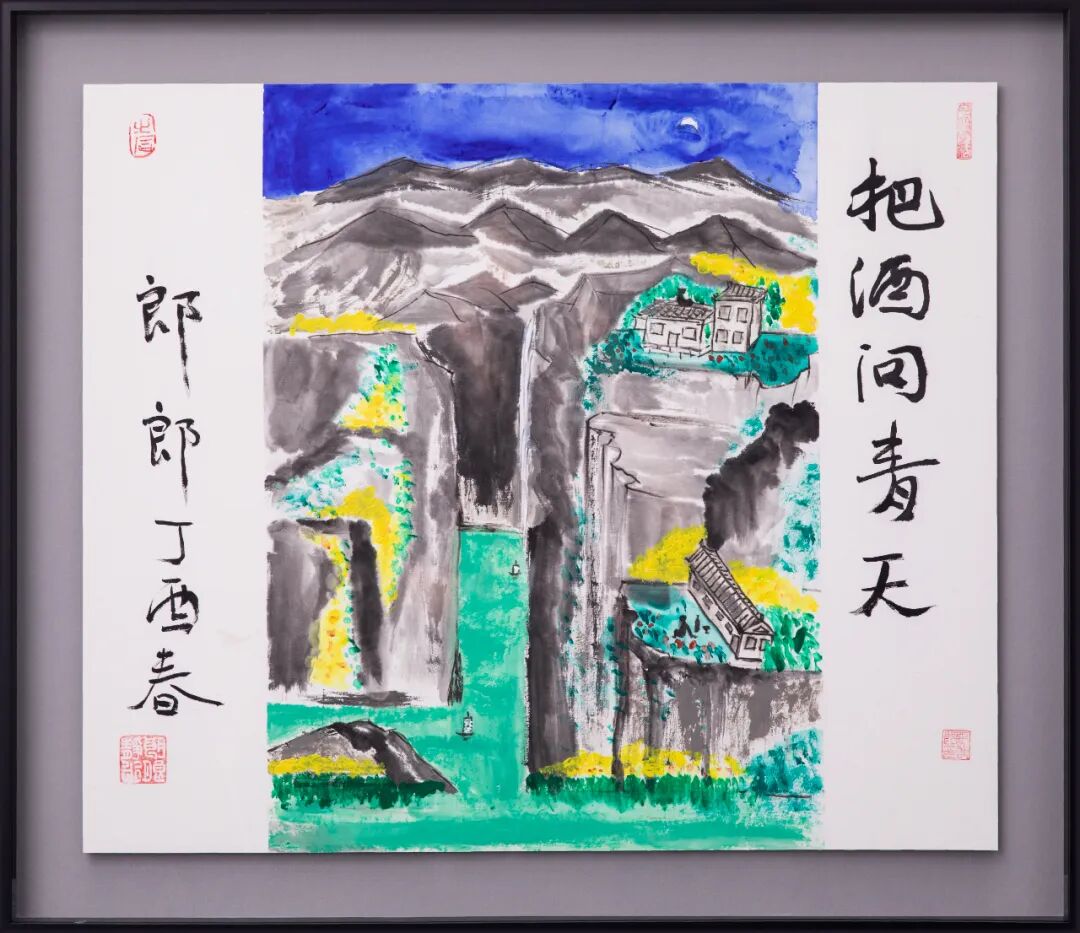 把酒问青天
郎郎丁酉春